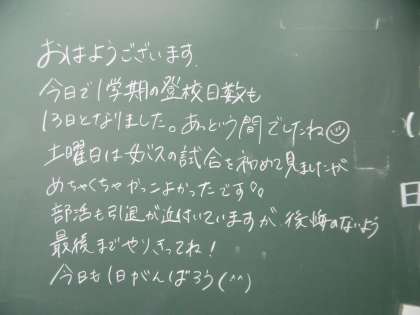 おはようございます.
今日で1学期の登校日数も
13日となりました。あっという間でしたね☺
土曜日は女バスの試合を初めて見ましたが
めちゃくちゃかっこよかったです。。
部活も引退が近付いていますが 後悔のないよう
最後までやりきってね!
今日も1日がんばろう(^^)
日